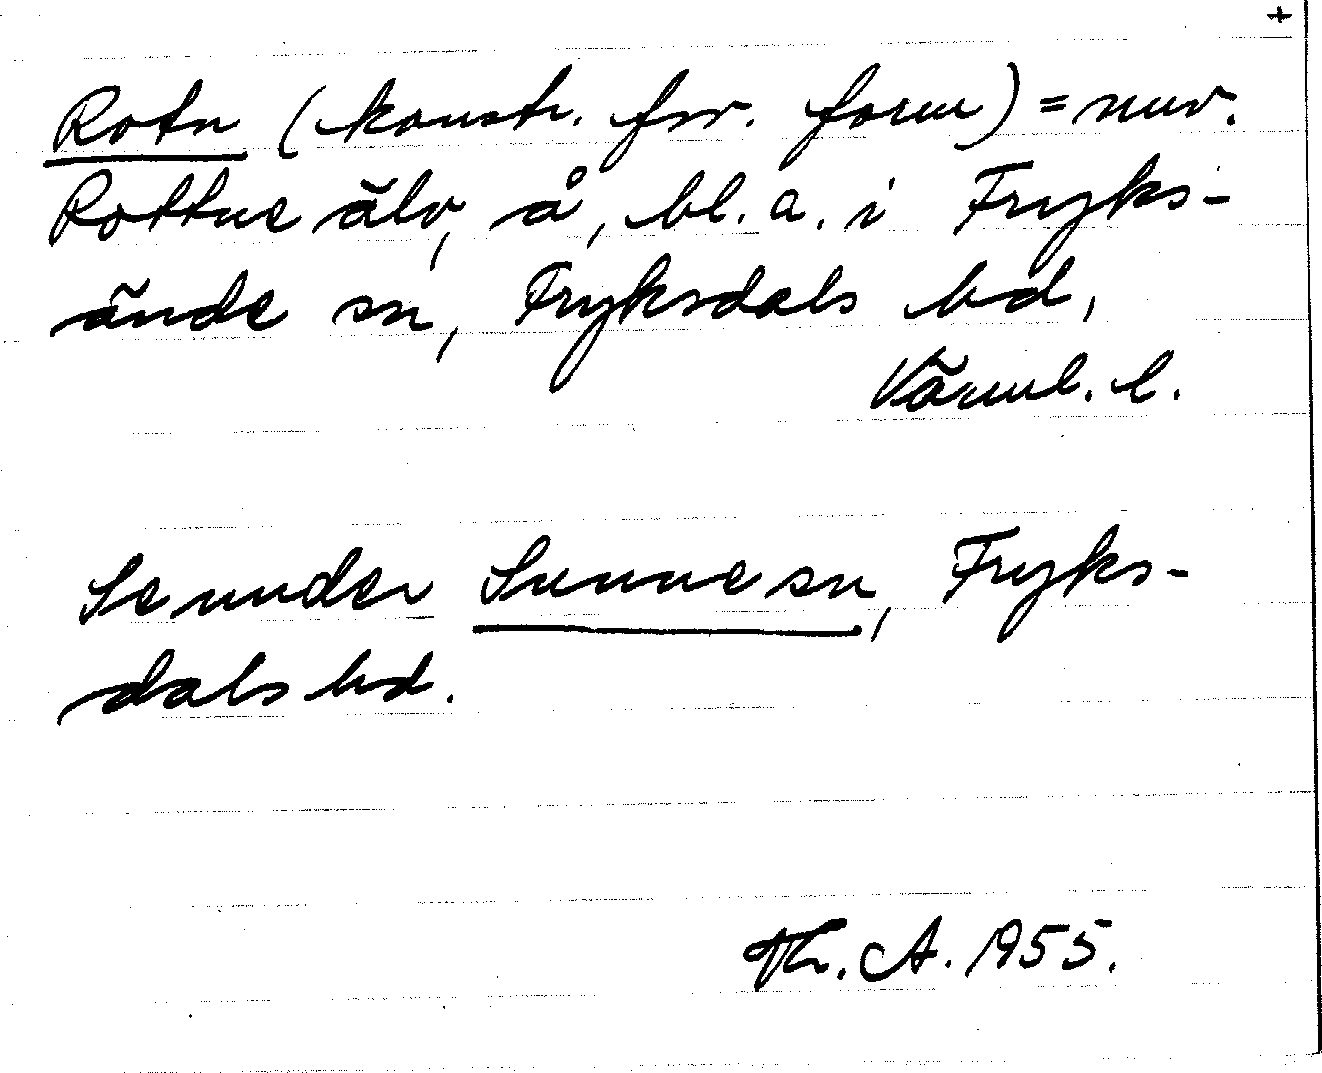 +
Rotn (konstr. fsv. form) = nuv.
Rottne älv, å, bl. a. i Fryks-
ände sn, Fryksdals hd,
Värml. l.
Se under Sunne sn, Fryks-
dals hd.
Th. A. 1955.